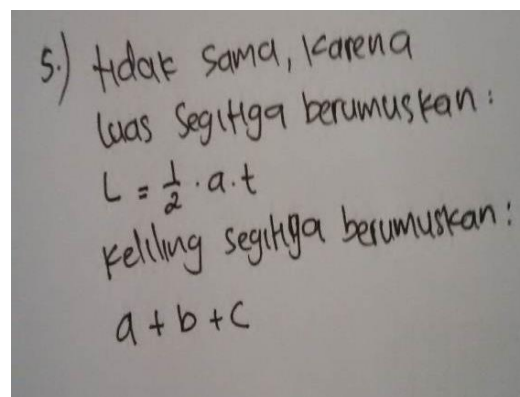 5.) tidak sama, karena
luas segitiga berumuskan :
L = 1/2 . a . t
keliling segitiga berumuskan :
a + b + c